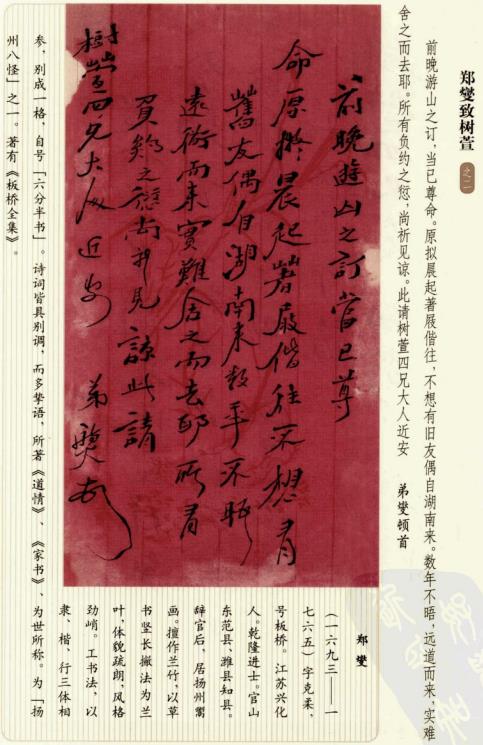 郑燮致树萱 之二
前晚游山之订，当已尊命。原拟晨起著屐偕往，不想有旧友偶自湖南来。数年不晤，远道而来，实难
舍之而去耶。所有负约之愆，尚祈见谅。此请树萱四兄大人近安 弟燮顿首
前晚遊山之訂當已尊
命原擬晨起著屐偕往不想有
舊友偶自湖南来数年不晤
遠衜而来實難舍之而去耶所有
負約之愆尚祈見諒此請
樹萱四兄大人近安 弟燮頓首
郑燮
（一六九三——一
七六五）字克柔，
号板桥。江苏兴化
人。乾隆进士。官山
东范县、潍县知县。
辞官后，居扬州鬻
画。擅作兰竹，以草
书竖长撇法为兰
叶，体貌疏朗，风格
劲峭。工书法，以
隶、楷、行三体相
参，别成一格，自号「六分半书」。诗词皆具别调，而多挚语，所著《道情》、《家书》，为世所称。为「扬
州八怪」之一。著有《板桥全集》。